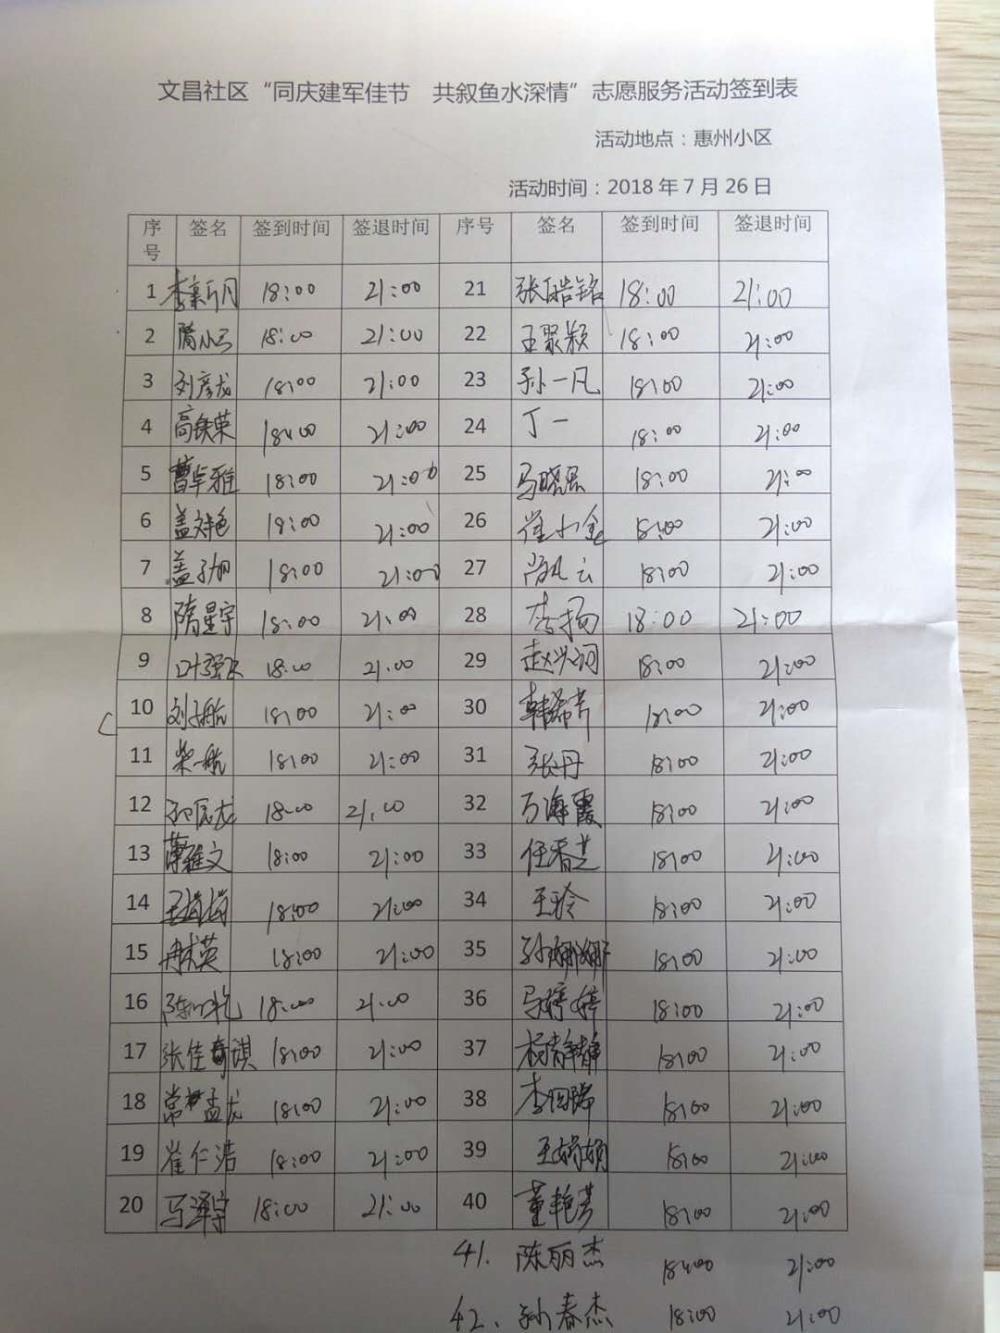 文昌社区“同庆建军佳节 共叙鱼水深情”志愿服务活动签到表
活动地点：惠州小区
活动时间：2018年7月26日
序号 签名 签到时间 签退时间 序号 签名 签到时间 签退时间
1 李新月 18:00 21:00 21 张皓铭 18:00 21:00
2 隋小 18:00 21:00 22 王聚颖 18:00 21:00
3 刘彦龙 18:00 21:00 23 孙一凡 18:00 21:00
4 高铁荣 18:00 21:00 24 丁一 18:00 21:00
5 曹卓雅 18:00 21:00 25 马晓 18:00 21:00
6 盖 18:00 21:00 26 崔小金 18:00 21:00
7 盖子旭 18:00 21:00 27 云 18:00 21:00
8 隋星宇 18:00 21:00 28 李扬 18:00 21:00
9 叶强 18:00 21:00 29 赵兴词 18:00 21:00
10 刘子航 18:00 21:00 30 韩希芹 18:00 21:00
11 柴一航 18:00 21:00 31 张丹 18:00 21:00
12 龙 18:00 21:00 32 万海霞 18:00 21:00
13 雅文 18:00 21:00 33 任香芝 18:00 21:00
14 王 18:00 21:00 34 王玲 18:00 21:00
15 英 18:00 21:00 35 孙娜娜 18:00 21:00
16 陈 艳 18:00 21:00 36 马婷婷 18:00 21:00
17 张佳琪 18:00 21:00 37 杨静静 18:00 21:00
18 常孟龙 18:00 21:00 38 李 18:00 21:00
19 崔仁浩 18:00 21:00 39 王娟娟 18:00 21:00
20 马泽宇 18:00 21:00 40 董艳芳 18:00 21:00
41. 陈丽杰 18:00 21:00
42、孙春杰 18:00 21:00